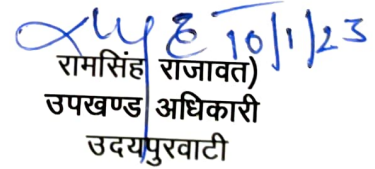 10/1/23
रामसिंह राजावत)
उपखण्ड अधिकारी
उदयपुरवाटी